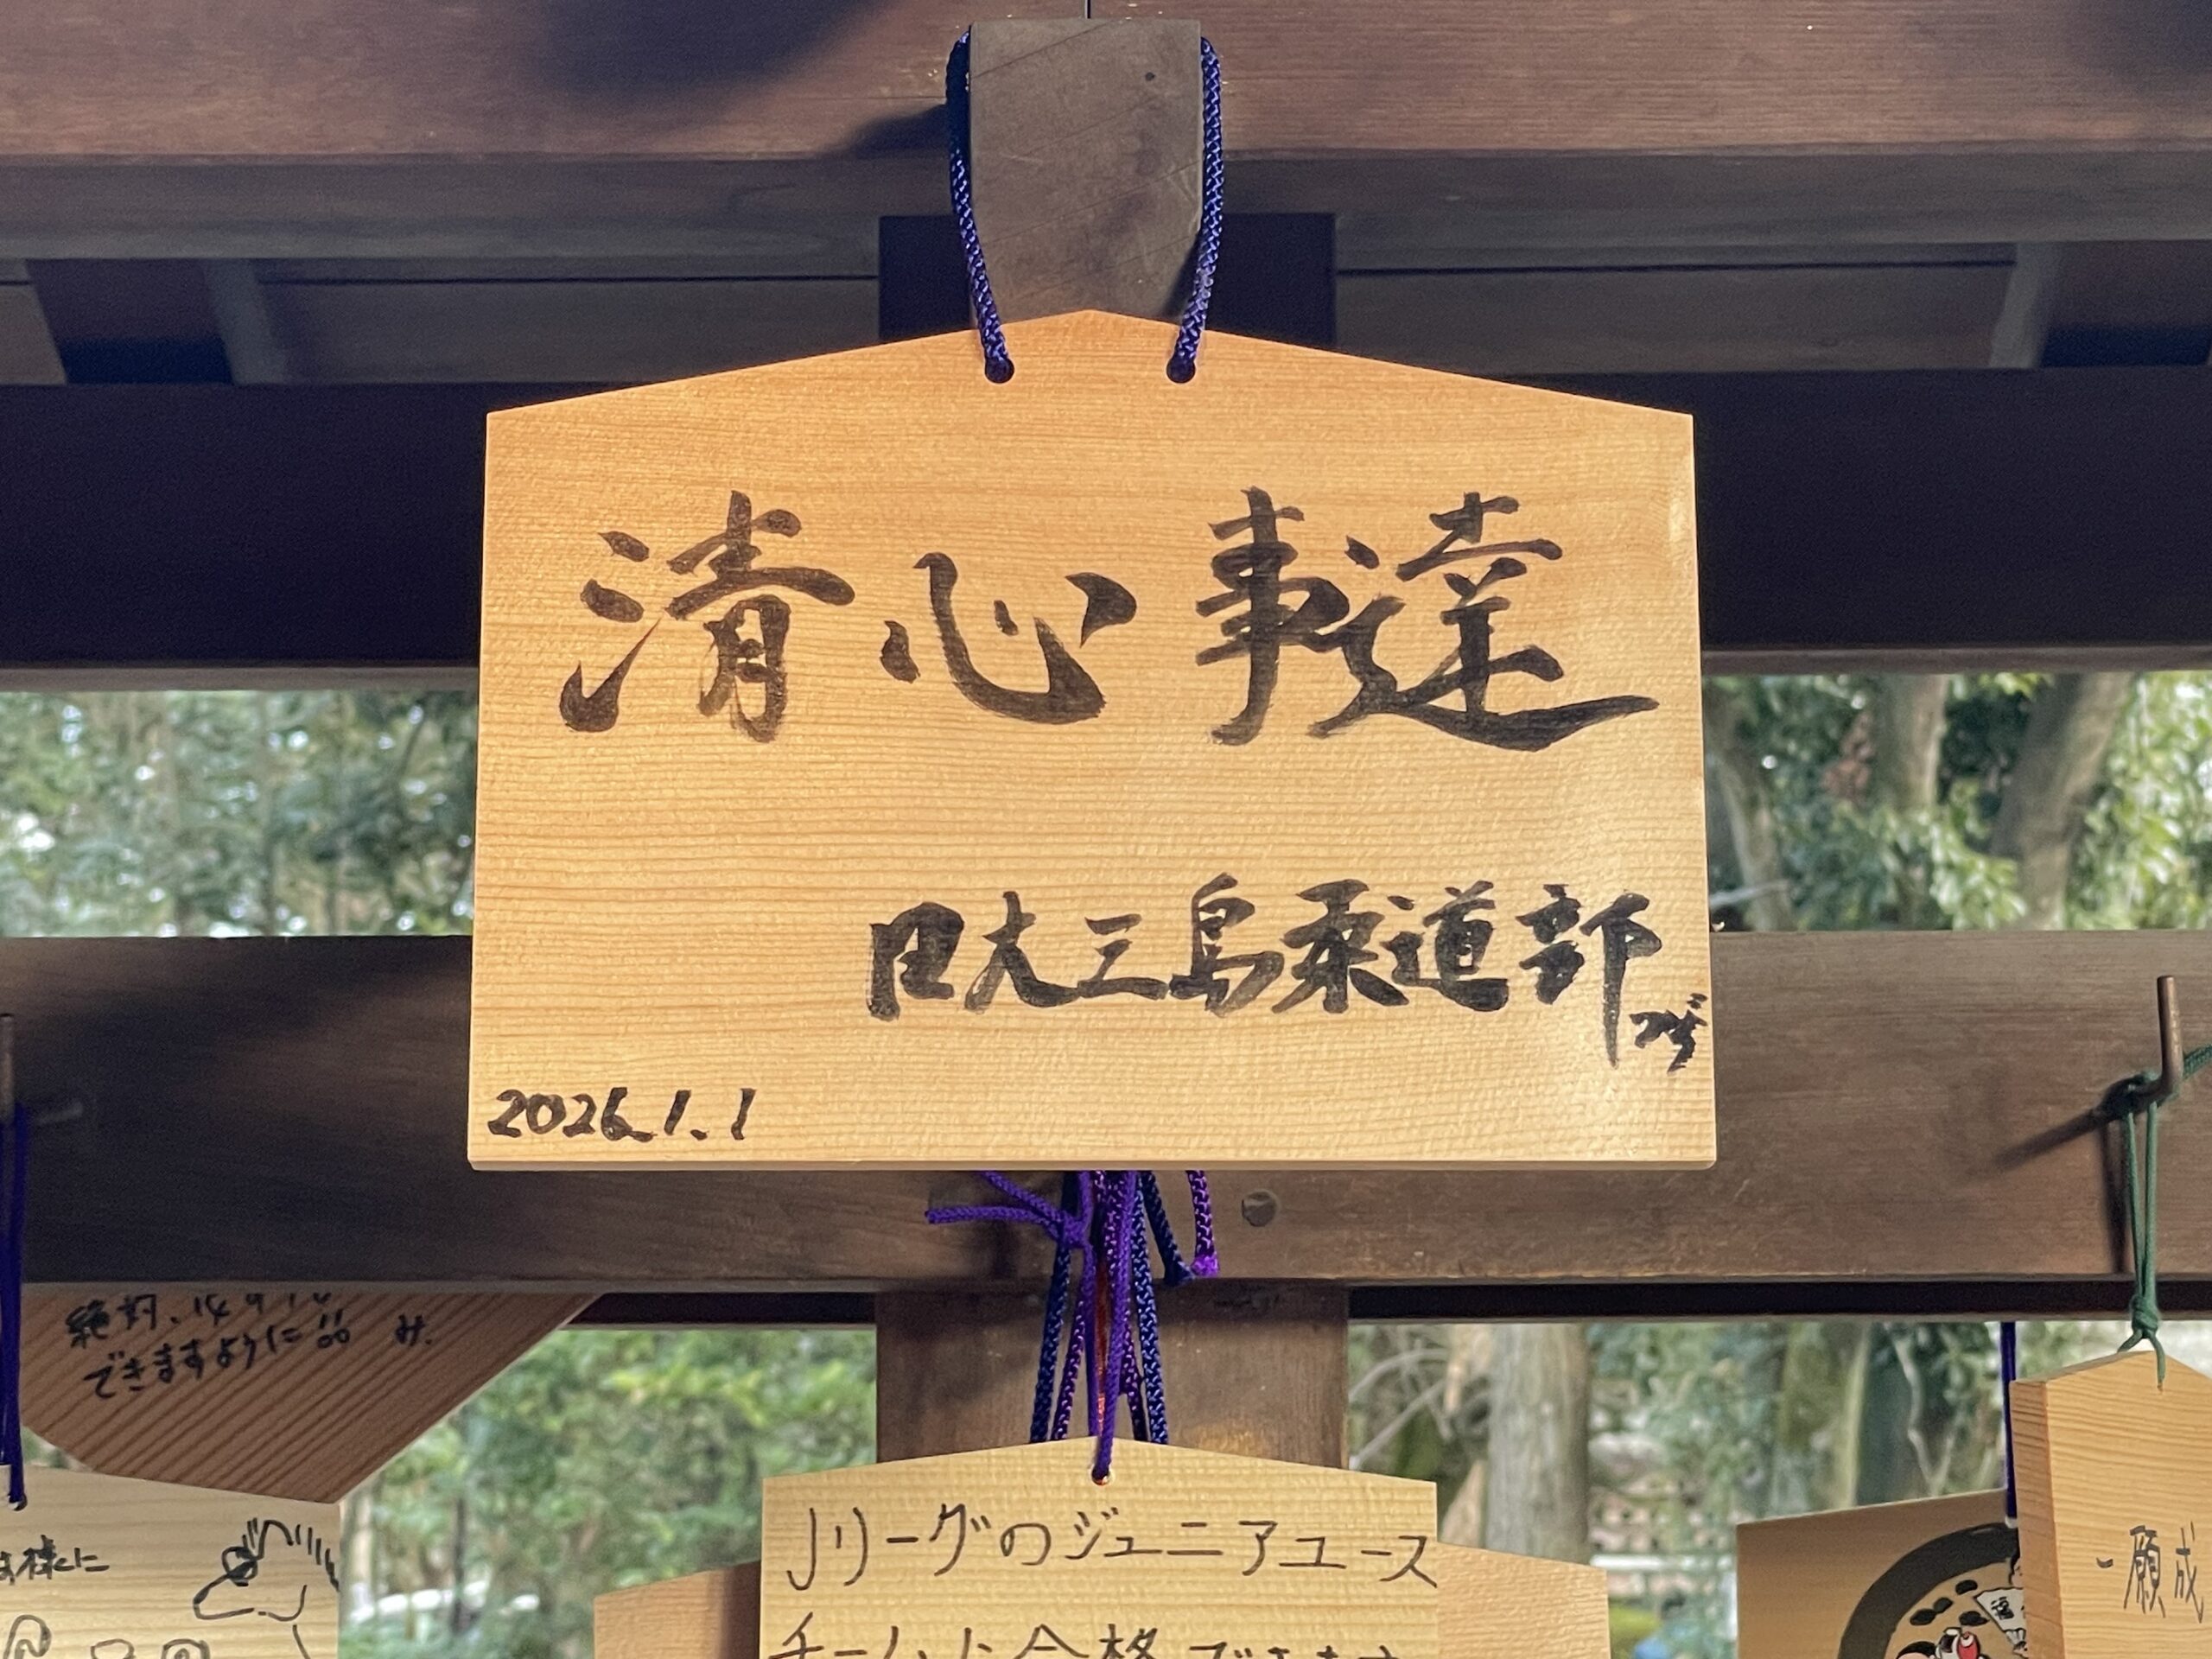 清心事達
日大三島柔道部
2026.1.1
絶対、
できますように
み.
様に
Jリーグのジュニアユース
チームに合格できます
一願成